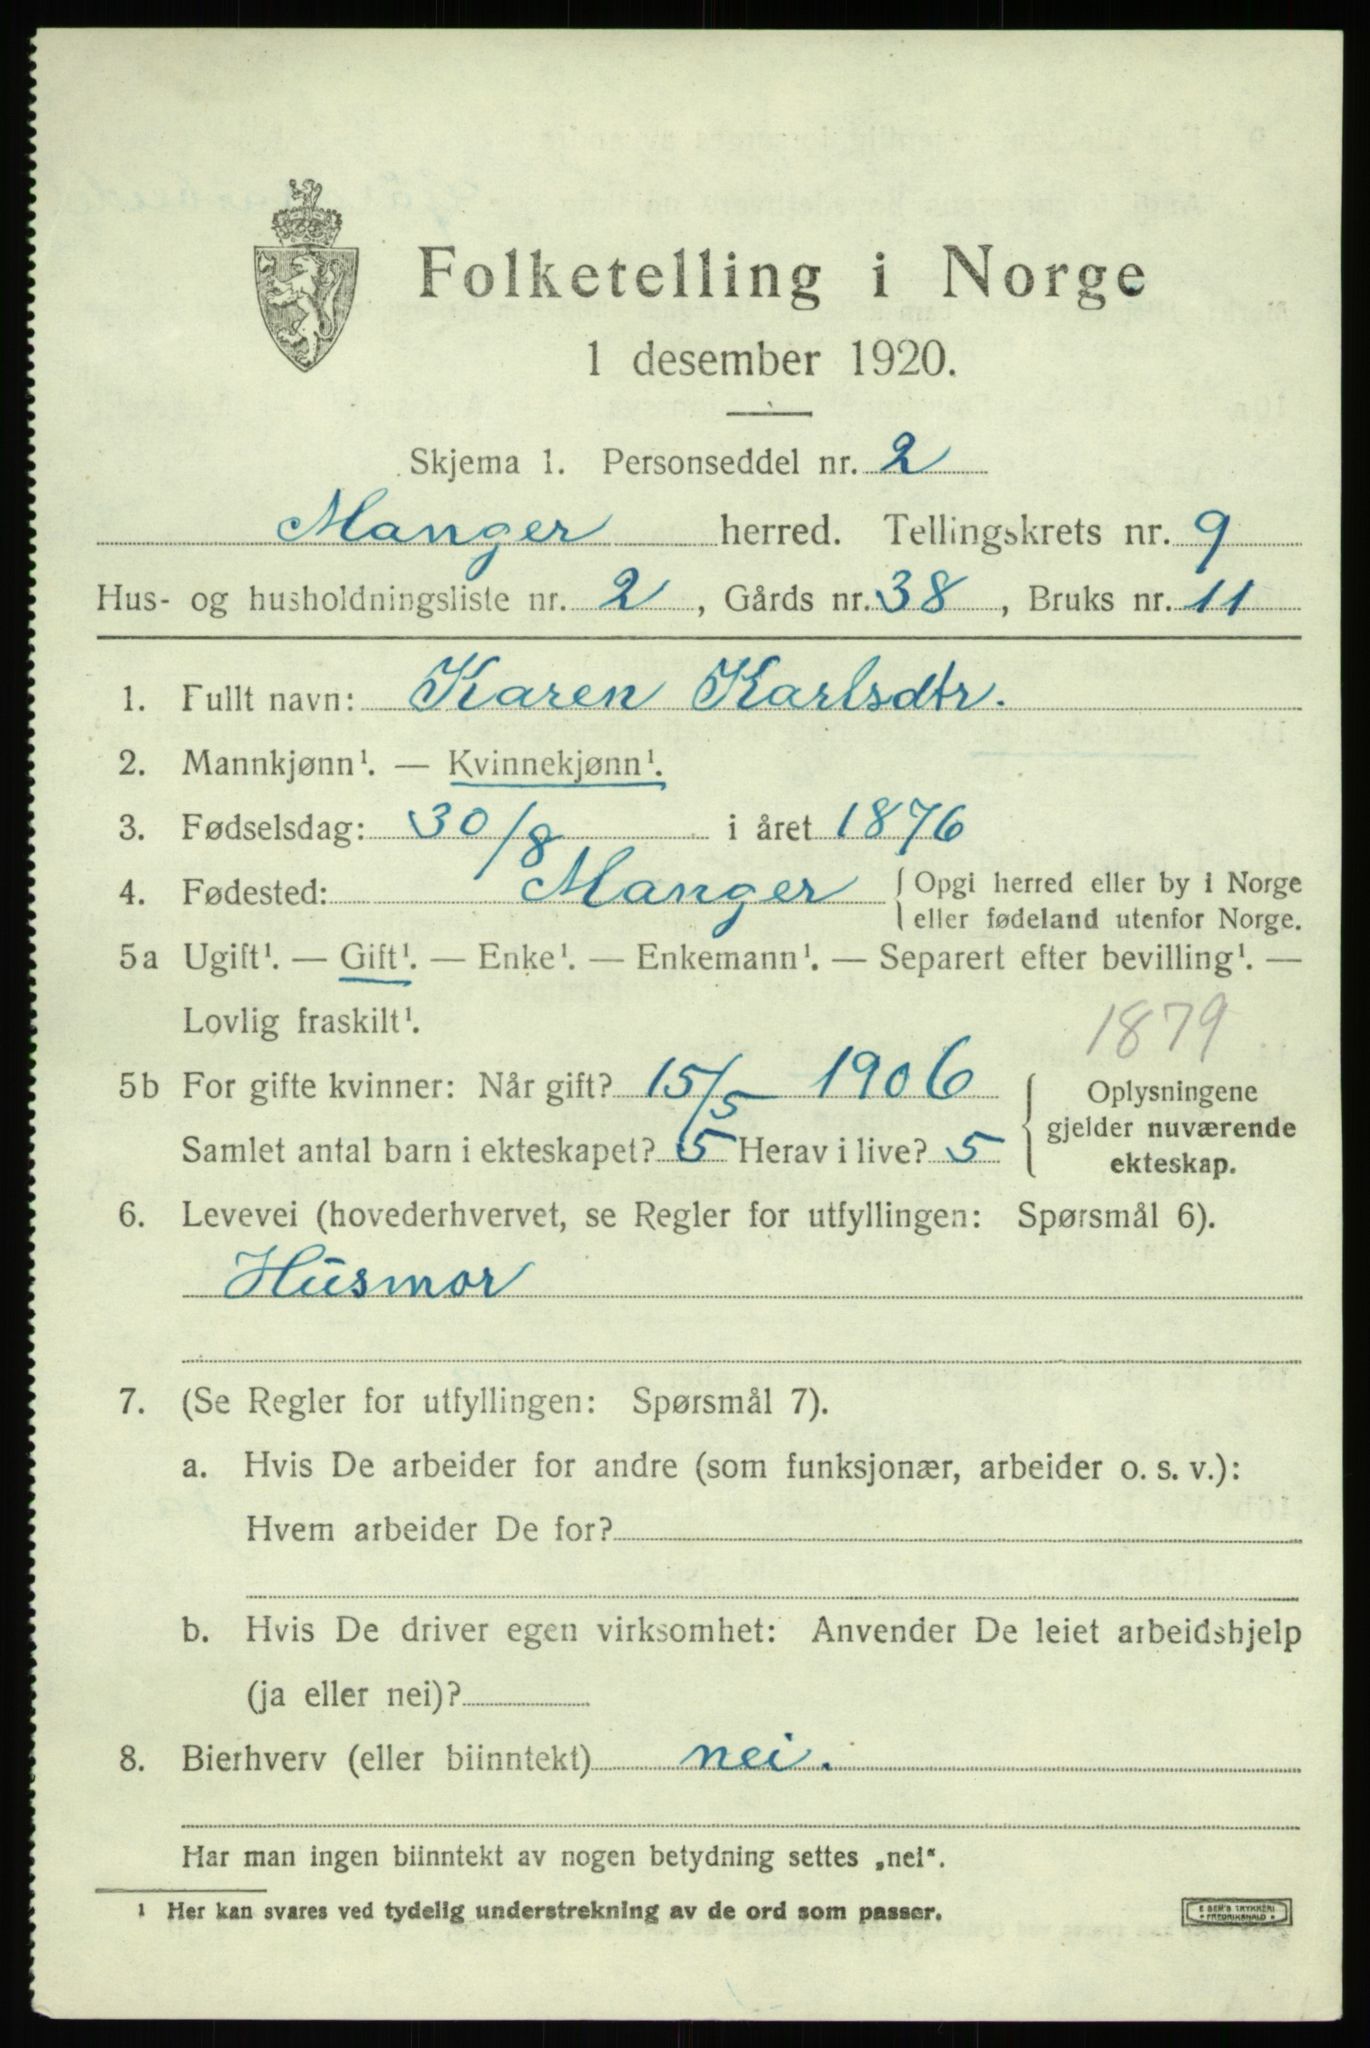 Folketelling i Norge
1 desember 1920.
Skjema 1. Personseddel nr. 2
Manger herred. Tellingskrets nr. 9
Hus- og husholdningsliste nr. 2, Gårds nr. 38, Bruks nr. 11
1. Fullt navn: Karen Karlsdtr.
2. Mannkjønn¹. — Kvinnekjønn¹.
3. Fødselsdag: 30/8 i året 1876
4. Fødested: Manger { Opgi herred eller by i Norge
eller fødeland utenfor Norge.
5a Ugift¹. — Gift¹. — Enke¹. — Enkemann¹. — Separert efter bevilling¹. —
Lovlig fraskilt¹.
1879
5b For gifte kvinner: Når gift? 15/5 1906
Samlet antal barn i ekteskapet? 5 Herav i live? 5
{ Oplysningene
gjelder nuværende
ekteskap.
6. Levevei (hovederhvervet, se Regler for utfyllingen: Spørsmål 6).
Husmor
7. (Se Regler for utfyllingen: Spørsmål 7).
a. Hvis De arbeider for andre (som funksjonær, arbeider o. s. v.):
Hvem arbeider De for?
b. Hvis De driver egen virksomhet: Anvender De leiet arbeidshjelp
(ja eller nei)?
8. Bierhverv (eller biinntekt) nei.
Har man ingen biinntekt av nogen betydning settes „nei“.
¹ Her kan svares ved tydelig understrekning av de ord som passer.